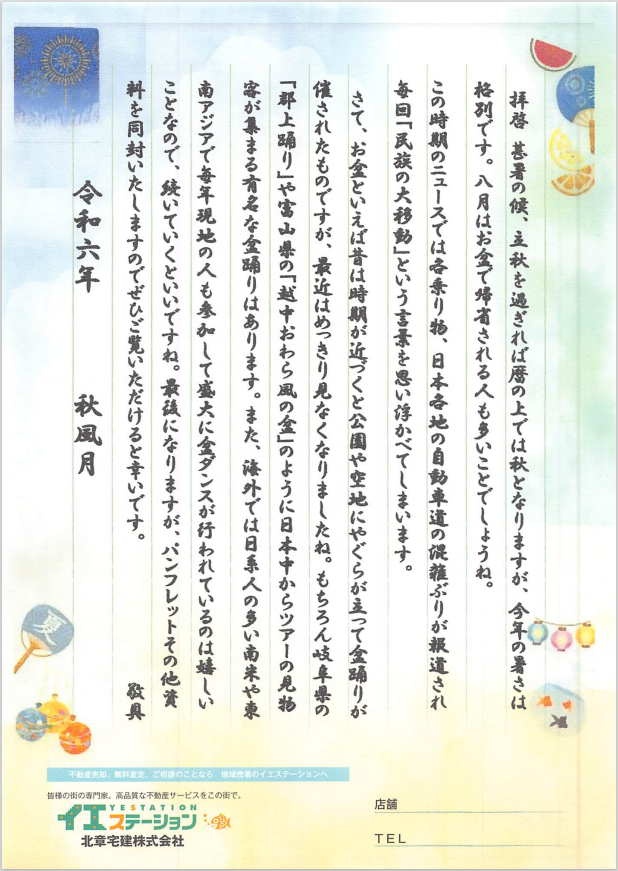 拝啓 甚暑の候、立秋を過ぎれば暦の上では秋となりますが、今年の暑さは
格別です。八月はお盆で帰省される人も多いことでしょうね。
この時期のニュースでは各乗り物、日本各地の自動車道の混雑ぶりが報道され
毎回「民族の大移動」という言葉を思い浮かべてしまいます。
さて、お盆といえば昔は時期が近づくと公園や空地にやぐらが立って盆踊りが
催されたものですが、最近はめっきり見なくなりましたね。もちろん岐阜県の
「郡上踊り」や富山県の「越中おわら風の盆」のように日本中からツアーの見物
客が集まる有名な盆踊りはあります。また、海外では日系人の多い南米や東
南アジアで毎年現地の人も参加して盛大に盆ダンスが行われているのは嬉しい
ことなので、続いていくといいですね。最後になりますが、パンフレットその他資
料を同封いたしますのでぜひご覧いただけると幸いです。
敬具
令和六年 秋風月
夏
不動産売却、無料査定、ご相談のことなら 地域密着のイエステーションへ
皆様の街の専門家。高品質な不動産サービスをこの街で。
YESTATION
イエステーション
北章宅建株式会社
店舗
TEL